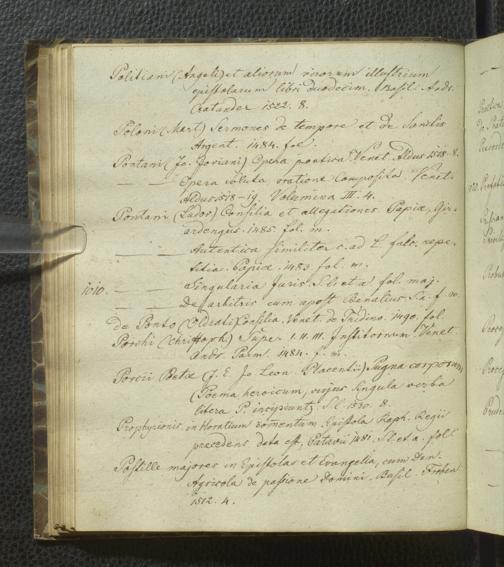 Politiani (Angeli) et aliorum virorum illustrium
epistolarum libri duodecim. Basil. Andr.
Cratander 1522. 8.
Poloni (Mart) Sermones de tempore et de Sanctis
Argent. 1484. fol.
Pontani (Jo. Joviani) Opera poetica Venet. Aldus 1518. 8.
— — Opera soluta oratione composita Venet.
Aldus 1518–19. Volumina III. 4.
Pontani (Ludov) Consilia et allegationes Papiae, Gir-
ardengus. 1485. fol. m.
— — similiter c. ad L. repe-
titia. Papiae. 1483 fol. m.
1010. — — Singularia Juris S. l. et a fol. maj.
— — De arbitris cum apost S. a. f. m.
de Ponto (Oldradi) Consilia. Venet. de Tridino. 1490. fol.
Porchi (Christoph) Super I. II. III. Institorum Venet.
Andr. 1484. f. m.
Porcii Poetae (J. E. Jo. Leon. Placentii) Pugna porcorum
(Poema heroicum, cujus singula verba
litera P. incipiunt) S. l. 1530. 8.
Porphyrionis in Horatium Epistola Raph. Regii
praecedens data est, Patavii 1481. S. l. et a. fol.
Postille majores in Epistolas et Evangelia, cum Dan.
Agricola de passione Domini. Basil. Froben
1512. 4.